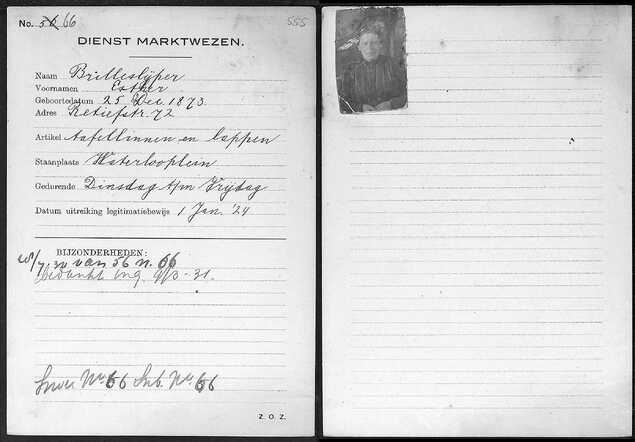 No. 56 66
555
DIENST MARKTWEZEN.
Naam Brilleslijper
Voornamen Esther
Geboortedatum 25 Dec. 1873.
Adres Retiefstr. 72
Artikel tafellinnen en lappen
Staanplaats Waterlooplein
Gedurende Dinsdag t/m Vrijdag
Datum uitreiking legitimatiebewijs 1 Jan. '24
BIJZONDERHEDEN:
van 56 n. 66
Bedankt ing. 9/3-31.
No 66 No 66
Z. O. Z.